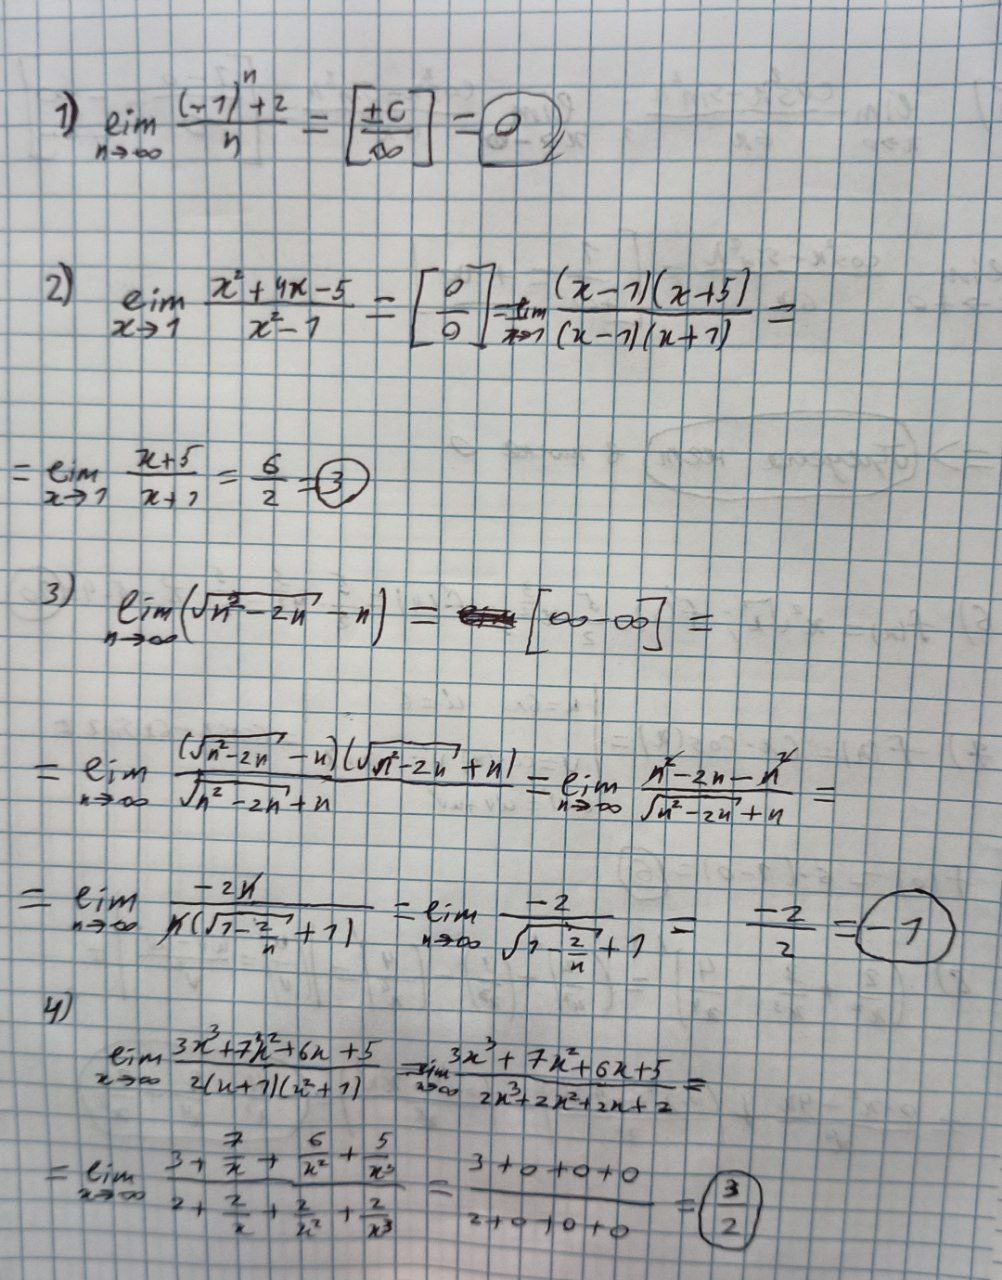 1) lim n→∞ ((-1)^n + 2)/n = [±C/∞] = 0
2) lim x→1 (x² + 4x - 5)/(x² - 1) = [0/0] = lim x→1 ((x-1)(x+5))/((x-1)(x+1)) =
= lim x→1 (x+5)/(x+1) = 6/2 = 3
3) lim n→∞ (√(n² - 2n) - n) = [∞ - ∞] =
= lim n→∞ ((√(n² - 2n) - n)(√(n² - 2n) + n))/(√(n² - 2n) + n) = lim n→∞ (n² - 2n - n²)/(√(n² - 2n) + n) =
= lim n→∞ (-2n)/(n(√(1 - 2/n) + 1)) = lim n→∞ (-2)/(√(1 - 2/n) + 1) = -2/2 = -1
4)
lim x→∞ (3x³ + 7x² + 6x + 5)/(2(x+1)(x²+1)) = lim x→∞ (3x³ + 7x² + 6x + 5)/(2x³ + 2x² + 2x + 2) =
= lim x→∞ (3 + 7/x + 6/x² + 5/x³)/(2 + 2/x + 2/x² + 2/x³) = (3+0+0+0)/(2+0+0+0) = 3/2